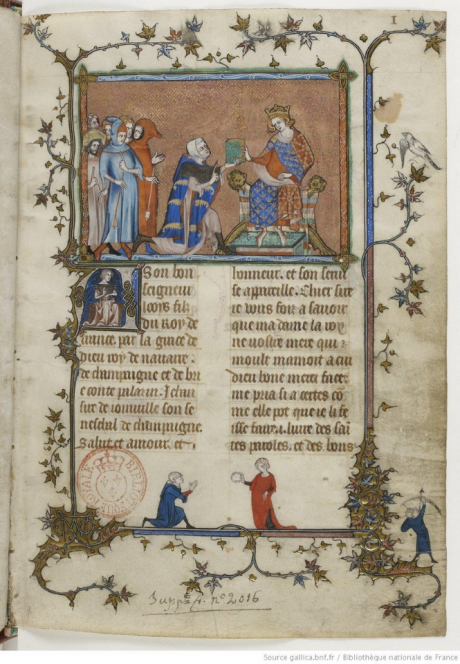 I
A Son bon
seigneur
looys filz
du roy de
france. par la grace de
dieu roy de nauarre.
de champaigne et de brie
conte palazin. Jehan
sire de ioinuille son se
neschal de champaigne.
Salut et amour. et
honneur. et son serui
se appareille. Chier sire
ie vous foiz a sauoir
que ma dame la roy
ne nostre mere qui
moult mamoit a cui
dieu bone merci face.
me pria si a certes co
me elle pot que ie li fe
isse faire .i. liure des sai
tes paroles. et des bons
Suppt fr. no 2016
Source gallica.bnf.fr / Bibliothèque nationale de France